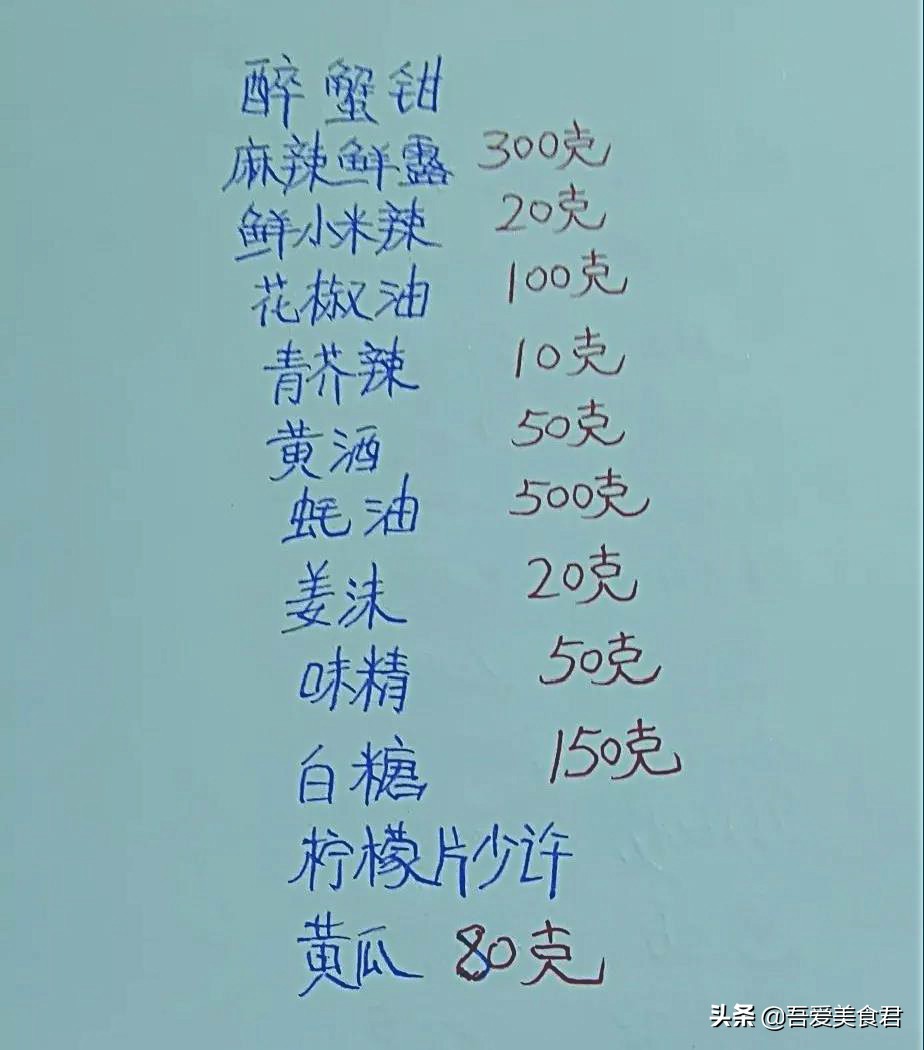 醉蟹钳
麻辣鲜露 300克
鲜小米辣 20克
花椒油 100克
青芥辣 10克
黄酒 50克
蚝油 500克
姜沫 20克
味精 50克
白糖 150克
柠檬片少许
黄瓜 80克
头条 @吾爱美食君